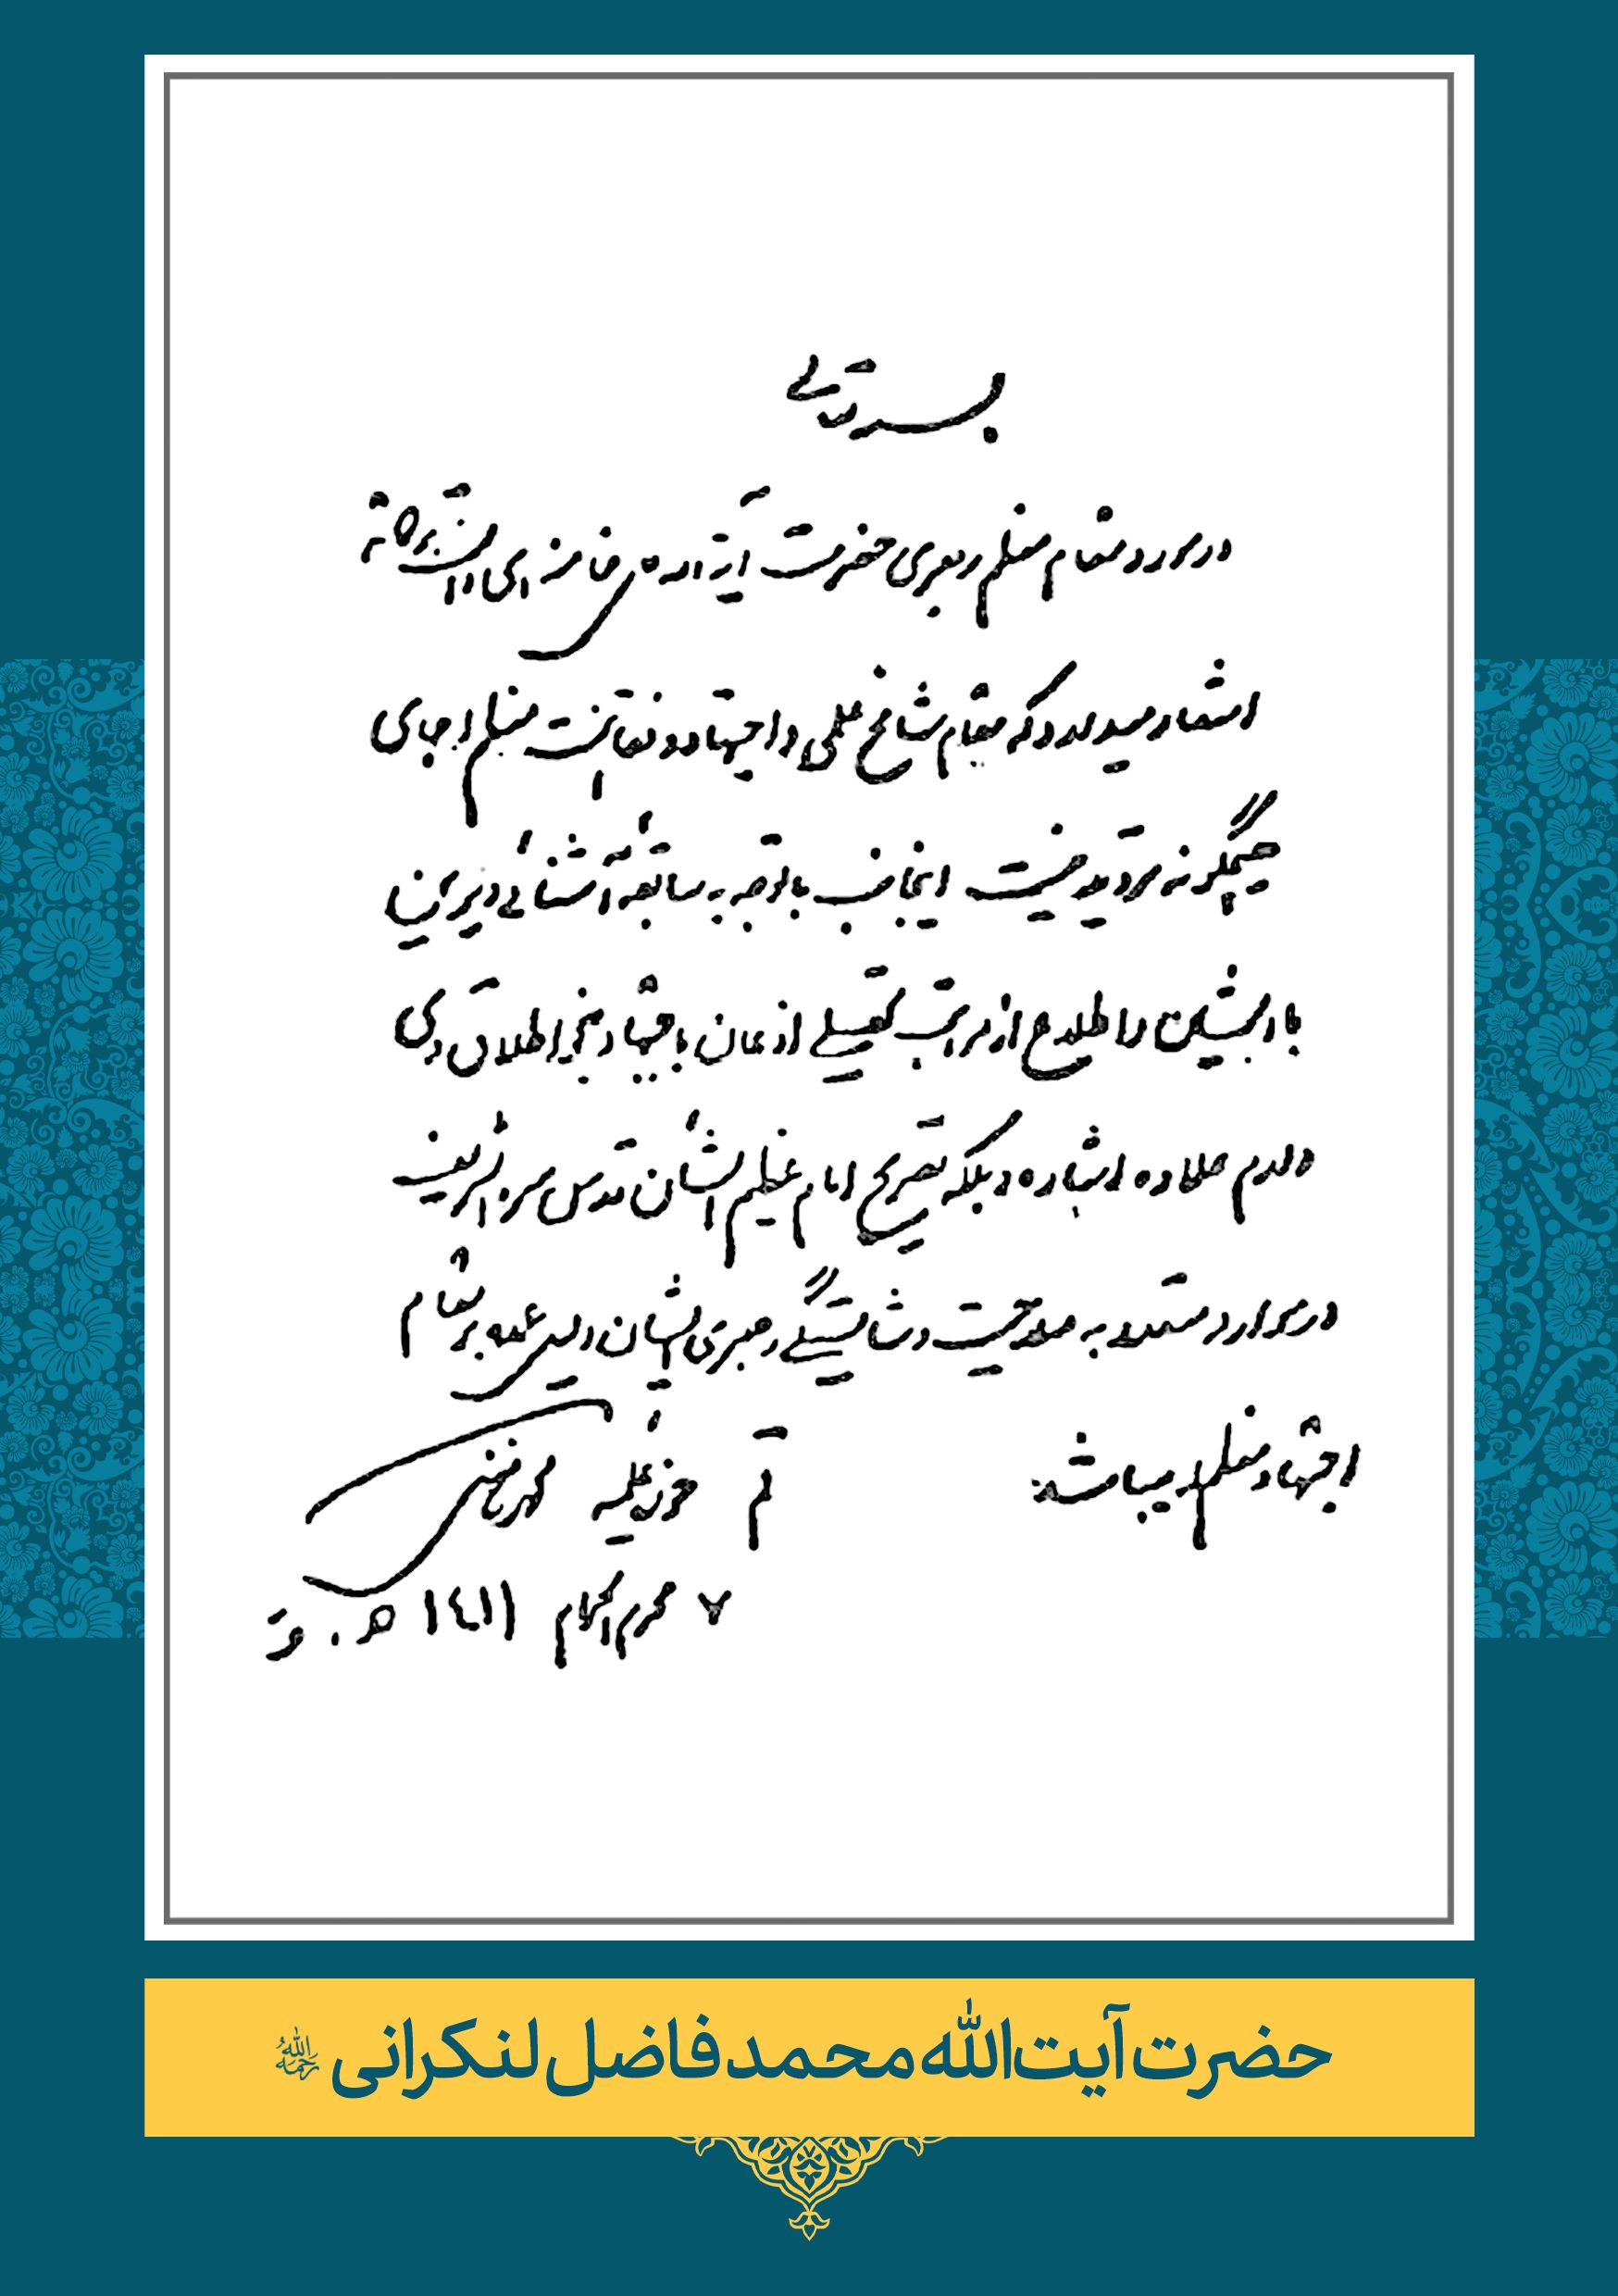 بسمه تعالی
در مورد مقام معظم رهبری حضرت آیة الله خامنه ای دامت برکاته
اشعار میدارد که مقام شامخ علمی و اجتهاد و فقاهت معظم له جای
هیچگونه تردید نیست اینجانب با توجه به سابقه آشنائی دیرین
با ایشان و اطلاع از مراتب تحصیلی اذعان باجتهاد بنحو اطلاق وی
دارم علاوه اشاره و بلکه تصریح امام عظیم الشأن قدس سره الشریف
در موارد متعدد به صلاحیت و شایستگی رهبری ایشان دلیل عمده بر مقام
اجتهاد معظم له میباشد
قم حوزه علمیه محمد فاضل
۷ محرم الحرام ۱۴۱۱ ه‍ . ق
حضرت آیت‌الله محمد فاضل لنکرانی رحمه‌الله